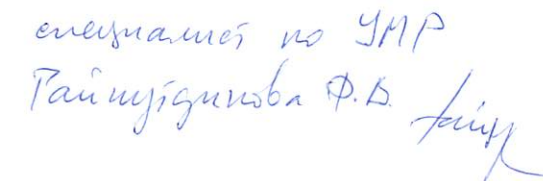 специалист по УМР
Гайнутдинова Ф.В.